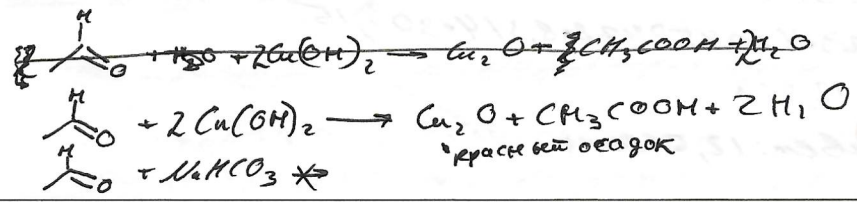 H
O + H₂O + 2Cu(OH)₂ → Cu₂O + CH₃COOH + 2H₂O
H
O + 2Cu(OH)₂ → Cu₂O + CH₃COOH + 2H₂O
красный осадок
H
O + NaHCO₃ ↛